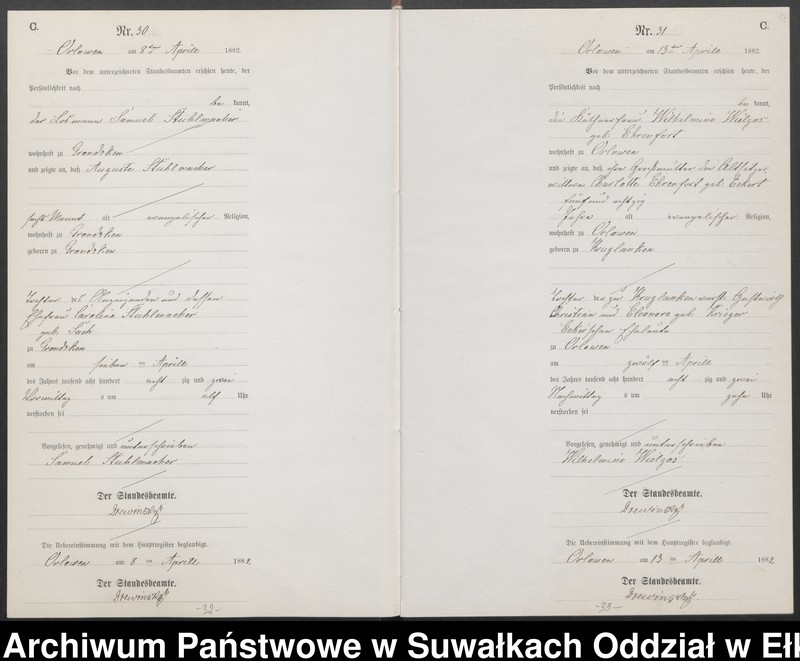 C.
Nr. 30
Orlowen am 8ten Aprill 1882.
Vor dem unterzeichneten Standesbeamten erschien heute, der
Persönlichkeit nach
be kannt,
der Losmann Samuel Stuhlmacher
wohnhaft zu Grondzken
und zeigte an, daß Auguste Stuhlmacher
sechs Monat alt evangelischer Religion,
wohnhaft zu Grondzken
geboren zu Grondzken
Tochter des Anzeigenden und dessen
Ehefrau Caroline Stuhlmacher
geb. Such
zu Grondzken
am sieben ten Aprill
des Jahres tausend acht hundert acht zig und zwei
Vormittag s um elf Uhr
verstorben sei
Vorgelesen, genehmigt und unterschrieben
Samuel Stuhlmacher
Der Standesbeamte.
Drewinski
Die Uebereinstimmung mit dem Hauptregister beglaubigt.
Orlowen am 8 ten Aprill 1882
Der Standesbeamte.
Drewinski
-32-
C.
Nr. 31
Orlowen am 13ten Aprill 1882
Vor dem unterzeichneten Standesbeamten erschien heute, der
Persönlichkeit nach
be kannt,
die Käthnerfrau Wilhelmine Wielgos
geb. Ehrenfort
wohnhaft zu Orlowen
und zeigte an, daß ihre Großmutter die Altsitzer
wittwe Charlotte Ehrenfort geb. Eckert
fünf und achtzig
Jahre alt evangelischer Religion,
wohnhaft zu Orlowen
geboren zu Kruglanken
Tochter der zu Kruglanken verst. Gastwirth
Christian und Eleonora geb. Krieger
Eckertschen Eheleute
zu Orlowen
am zwölf ten Aprill
des Jahres tausend acht hundert acht zig und zwei
Nachmittag s um zehn Uhr
verstorben sei
Vorgelesen, genehmigt und unterschrieben
Wilhelmine Wielgos
Der Standesbeamte.
Drewinski
Die Uebereinstimmung mit dem Hauptregister beglaubigt.
Orlowen am 13 ten Aprill 1882
Der Standesbeamte.
Drewinski
-33-
Archiwum Państwowe w Suwałkach Oddział w Ełk